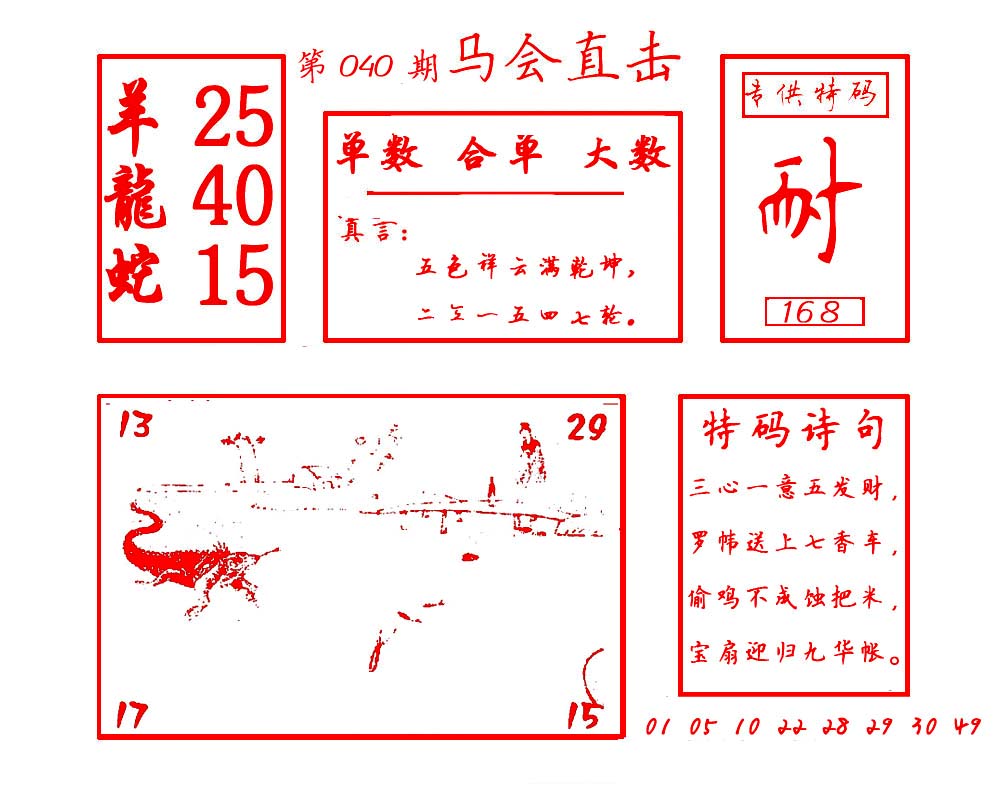 第 040 期 马会直击
羊 25
龍 40
蛇 15
单数 合单 大数
真言:
五色祥云满乾坤,
二三一五四七轮。
专供特码
耐
168
13
29
17
15
特码诗句
三心一意五发财,
罗帏送上七香车,
偷鸡不成蚀把米,
宝扇迎归九华帐。
01 05 10 22 28 29 30 49